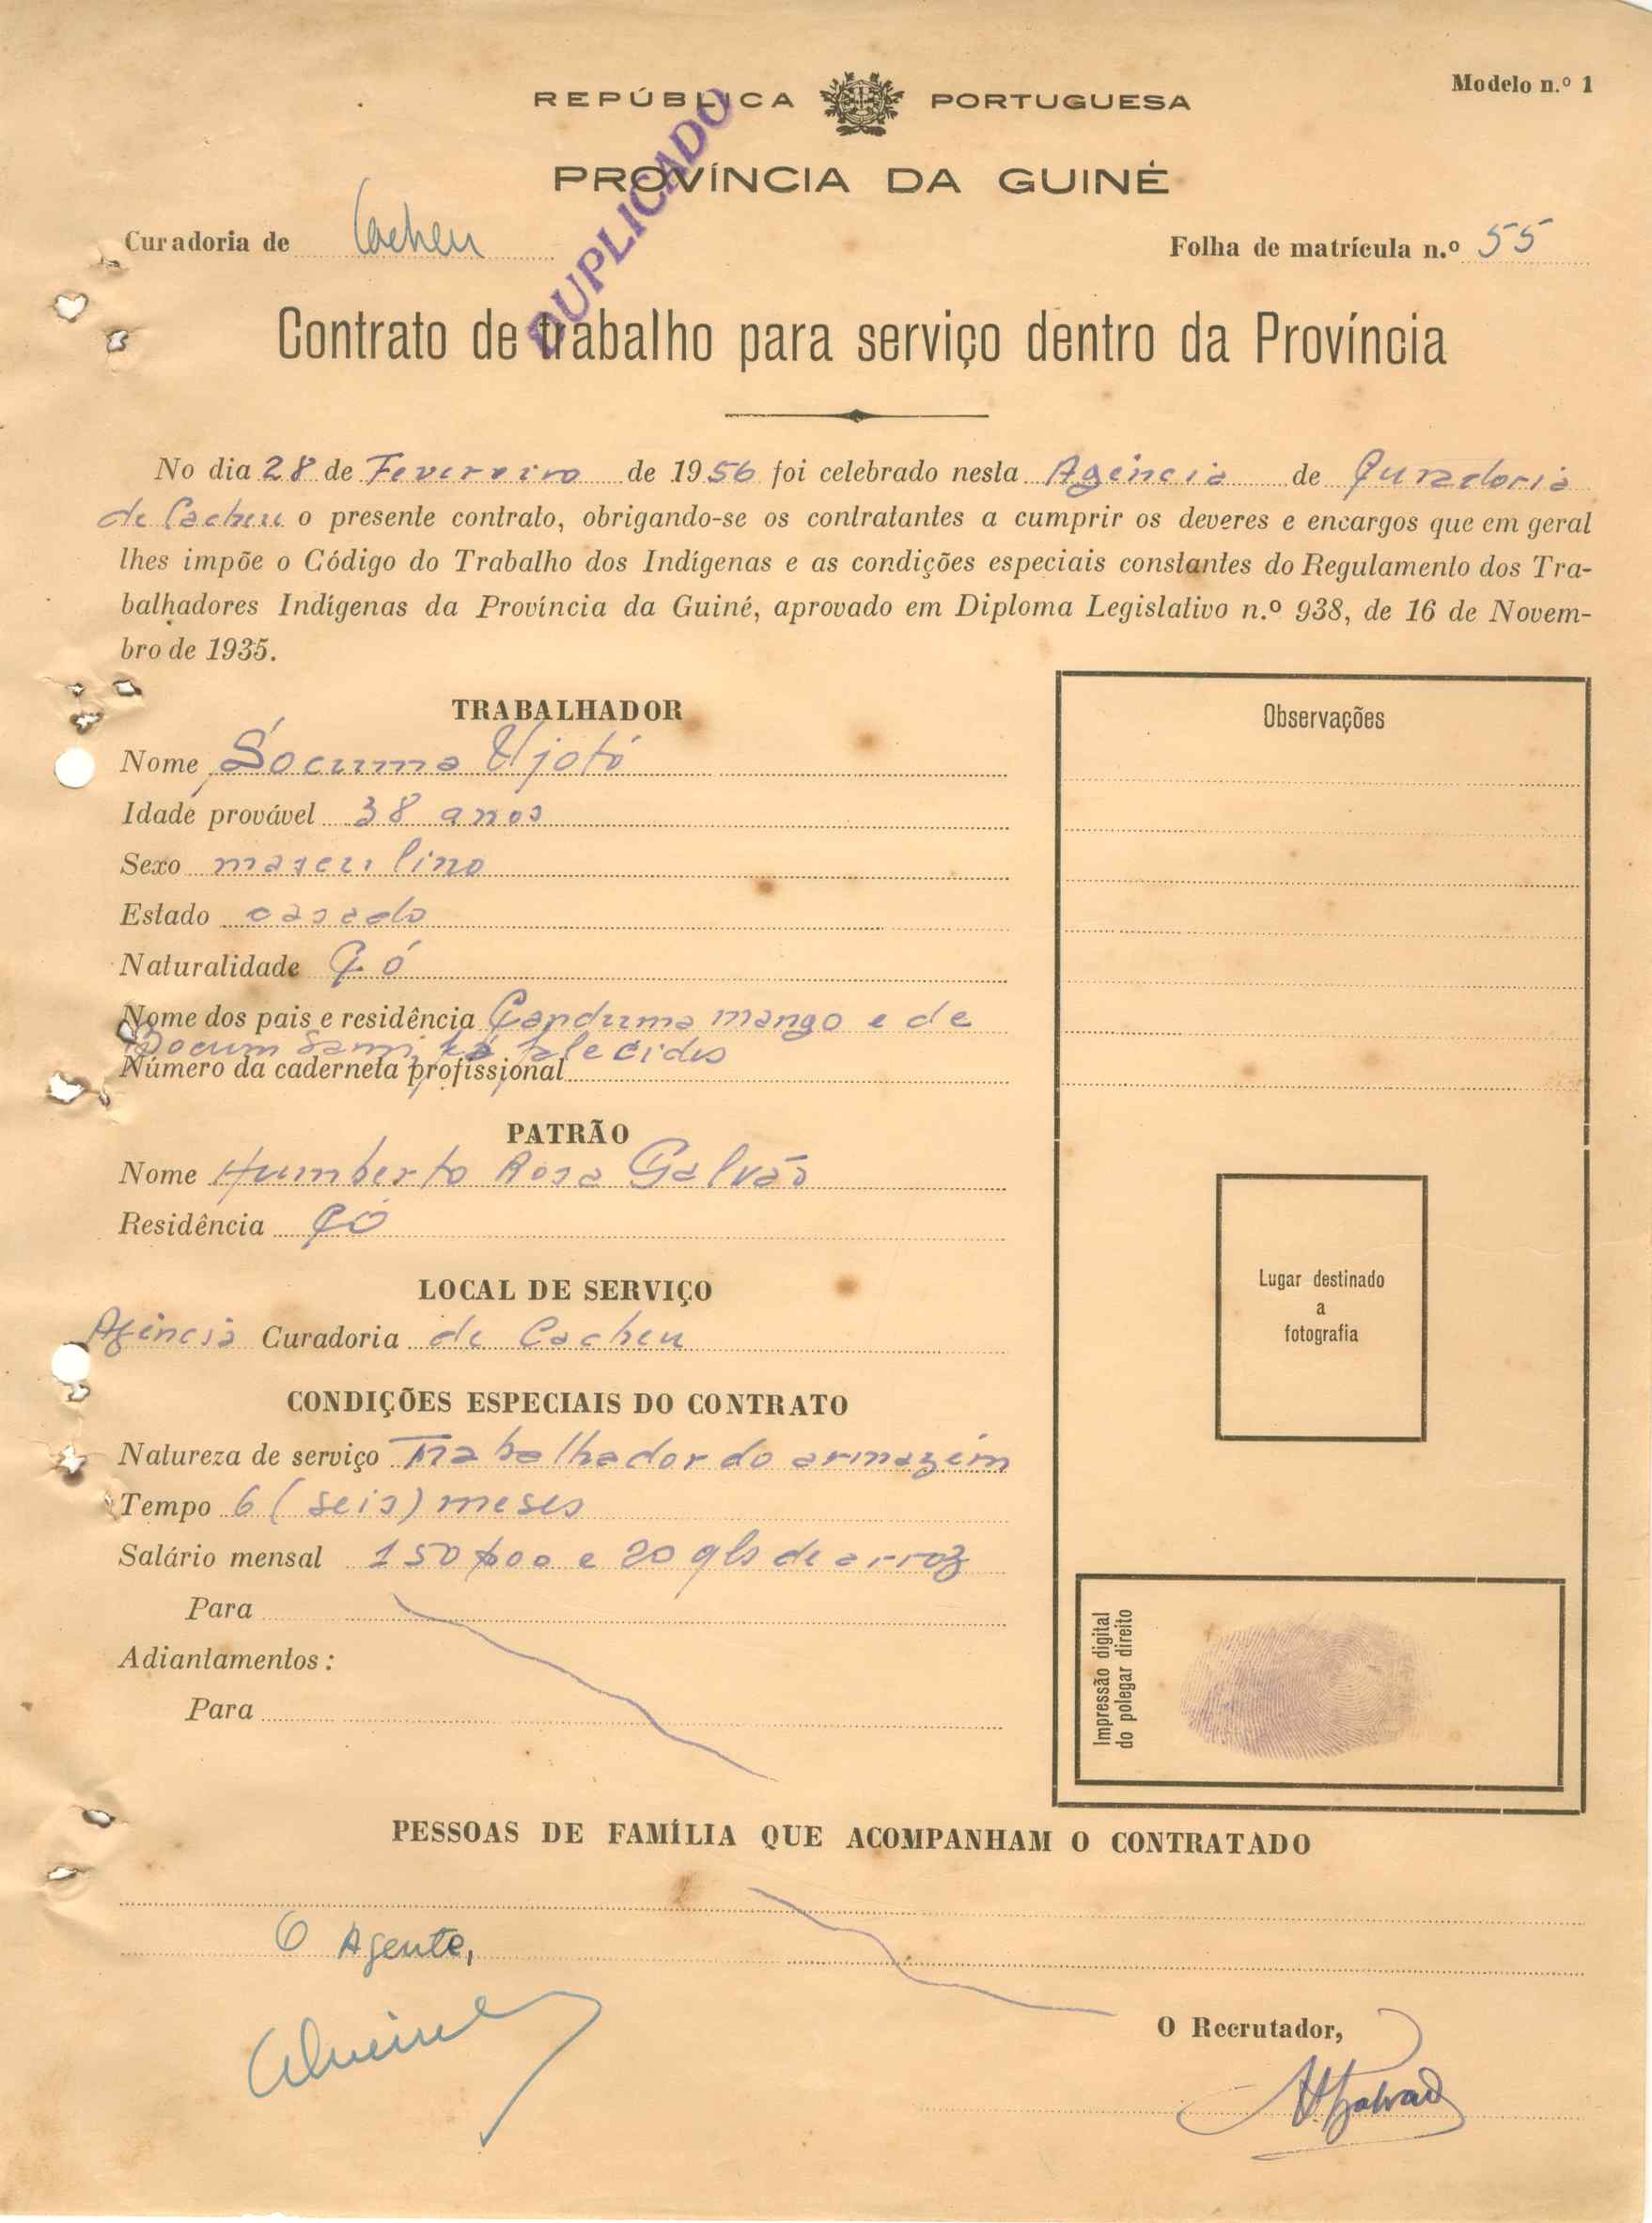 Modelo n.º 1
REPÚBLICA PORTUGUESA
DUPLICADO
PROVÍNCIA DA GUINÉ
Curadoria de Cacheu
Folha de matrícula n.º 55
Contrato de trabalho para serviço dentro da Província
No dia 28 de Fevereiro de 1956 foi celebrado nesta Agência de Curadoria
de Cacheu o presente contrato, obrigando-se os contratantes a cumprir os deveres e encargos que em geral
lhes impõe o Código do Trabalho dos Indígenas e as condições especiais constantes do Regulamento dos Tra-
balhadores Indígenas da Província da Guiné, aprovado em Diploma Legislativo n.º 938, de 16 de Novem-
bro de 1935.
TRABALHADOR
Nome Socuma Ujotó
Idade provável 38 anos
Sexo masculino
Estado casado
Naturalidade Có
Nome dos pais e residência Canduma mango e de
Docum Sami, já falecidos
Número da caderneta profissional
PATRÃO
Nome Humberto Rosa Galvão
Residência Có
LOCAL DE SERVIÇO
Agência Curadoria de Cacheu
CONDIÇÕES ESPECIAIS DO CONTRATO
Natureza de serviço Trabalhador do armazém
Tempo 6 (seis) meses
Salário mensal 150$00 e 20 qls de arroz
Para
Adiantamentos:
Para
Observações
Lugar destinado
a
fotografia
Impressão digital
do polegar direito
PESSOAS DE FAMÍLIA QUE ACOMPANHAM O CONTRATADO
O Agente,
O Recrutador,
HGalvão